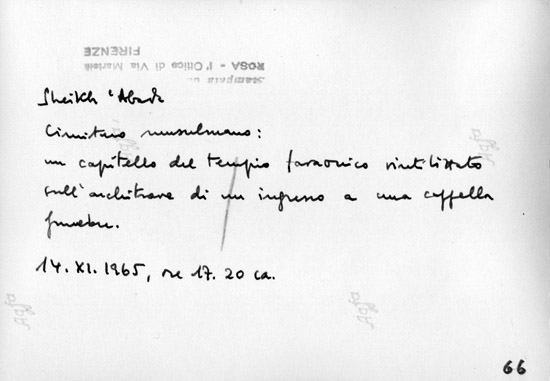 Stampata da
ROSA - l'Ottico di Via Martelli
FIRENZE
Sheikh 'Abada
Cimitero musulmano:
un capitello del tempio faraonico riutilizzato
sull'architrave di un ingresso a una cappella
funebre.
14.XI.1965, ore 17.20 ca.
Agfa
Agfa
Agfa
Agfa
66